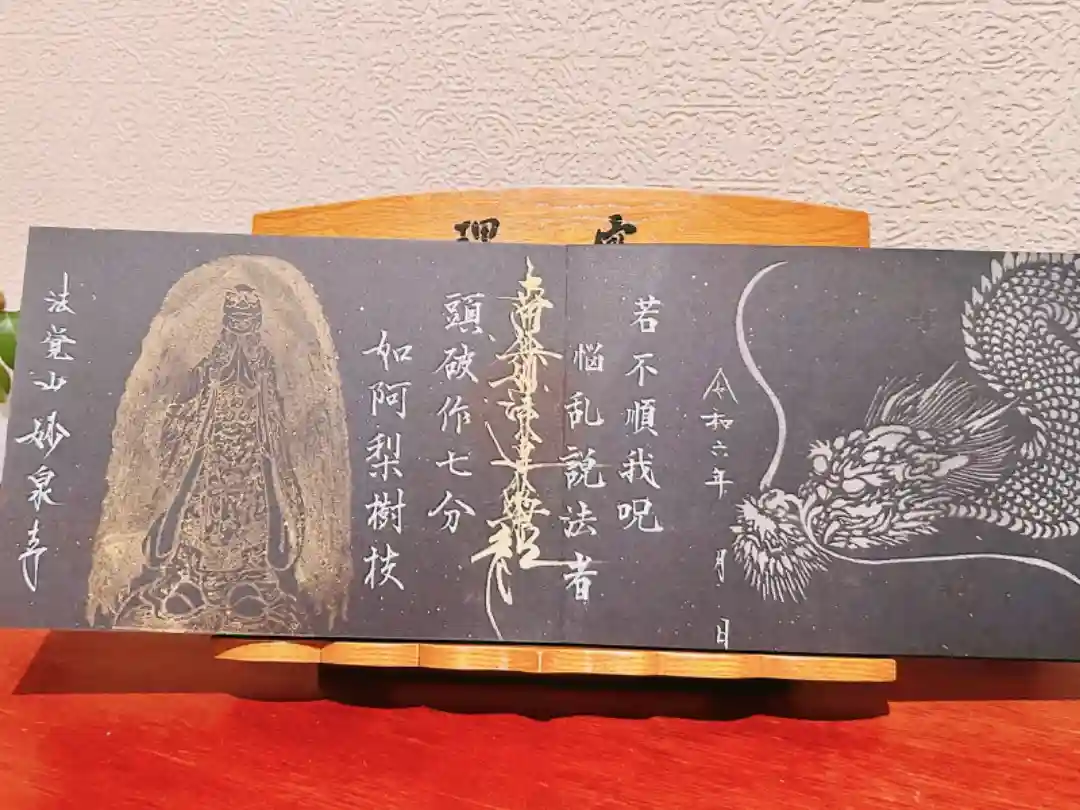 令和六年 月 日
若不順我呪
悩乱説法者
南無妙法蓮華經
頭破作七分
如阿梨樹枝
法覚山妙泉寺